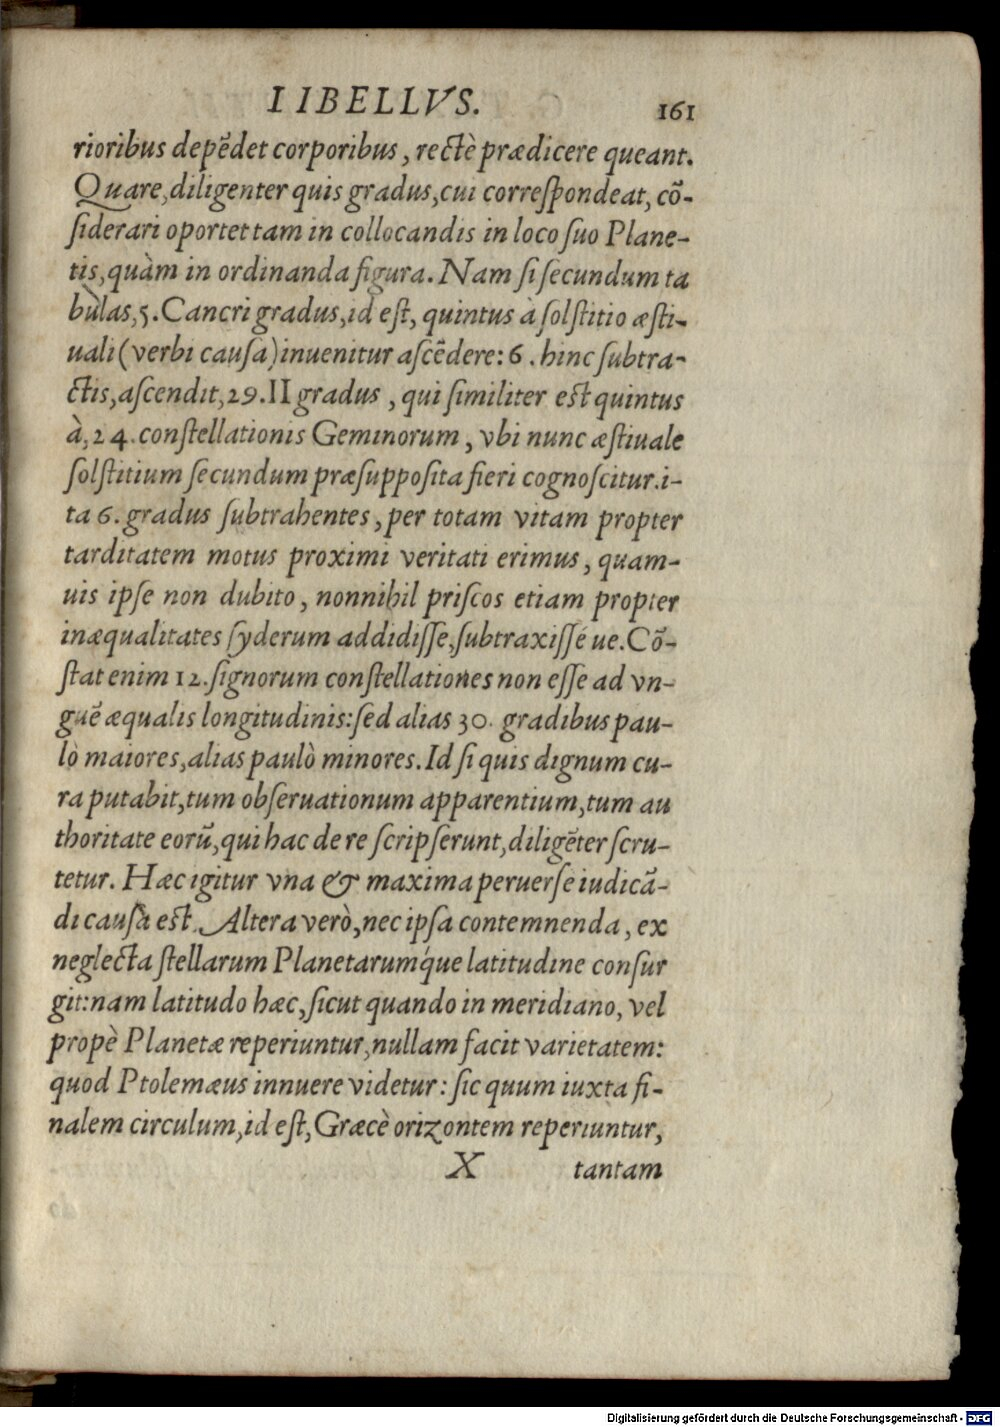 LIBELLVS. 161
rioribus depēdet corporibus, rectè prædicere queant.
Quare, diligenter quis gradus, cui correſpondeat, cō-
ſiderari oportet tam in collocandis in loco ſuo Plane-
tis, quàm in ordinanda figura. Nam ſi ſecundum ta
bulas, 5. Cancri gradus, id eſt, quintus à ſolſtitio æſti-
uali (verbi cauſa) inuenitur aſcēdere: 6. hinc ſubtra-
ctis, aſcendit, 29. II gradus, qui ſimiliter eſt quintus
à, 24. conſtellationis Geminorum, vbi nunc æſtiuale
ſolſtitium ſecundum præſuppoſita fieri cognoſcitur. i-
ta 6. gradus ſubtrahentes, per totam vitam propter
tarditatem motus proximi veritati erimus, quam-
uis ipſe non dubito, nonnihil priſcos etiam propter
inæqualitates ſyderum addidiſſe, ſubtraxiſſé ue. Cō-
ſtat enim 12. ſignorum conſtellationes non eſſe ad vn-
guē æqualis longitudinis: ſed alias 30. gradibus pau-
lò maiores, alias paulò minores. Id ſi quis dignum cu-
ra putabit, tum obſeruationum apparentium, tum au
thoritate eorū, qui hac de re ſcripſerunt, diligēter ſcru-
tetur. Hæc igitur vna & maxima peruerſe iudicā-
di cauſa eſt. Altera verò, nec ipſa contemnenda, ex
neglecta ſtellarum Planetaruḿque latitudine conſur
git: nam latitudo hæc, ſicut quando in meridiano, vel
propè Planetæ reperiuntur, nullam facit varietatem:
quod Ptolemæus innuere videtur: ſic quum iuxta fi-
nalem circulum, id eſt, Græcè orizontem reperiuntur,
X tantam
Digitalisierung gefördert durch die Deutsche Forschungsgemeinschaft - DFG